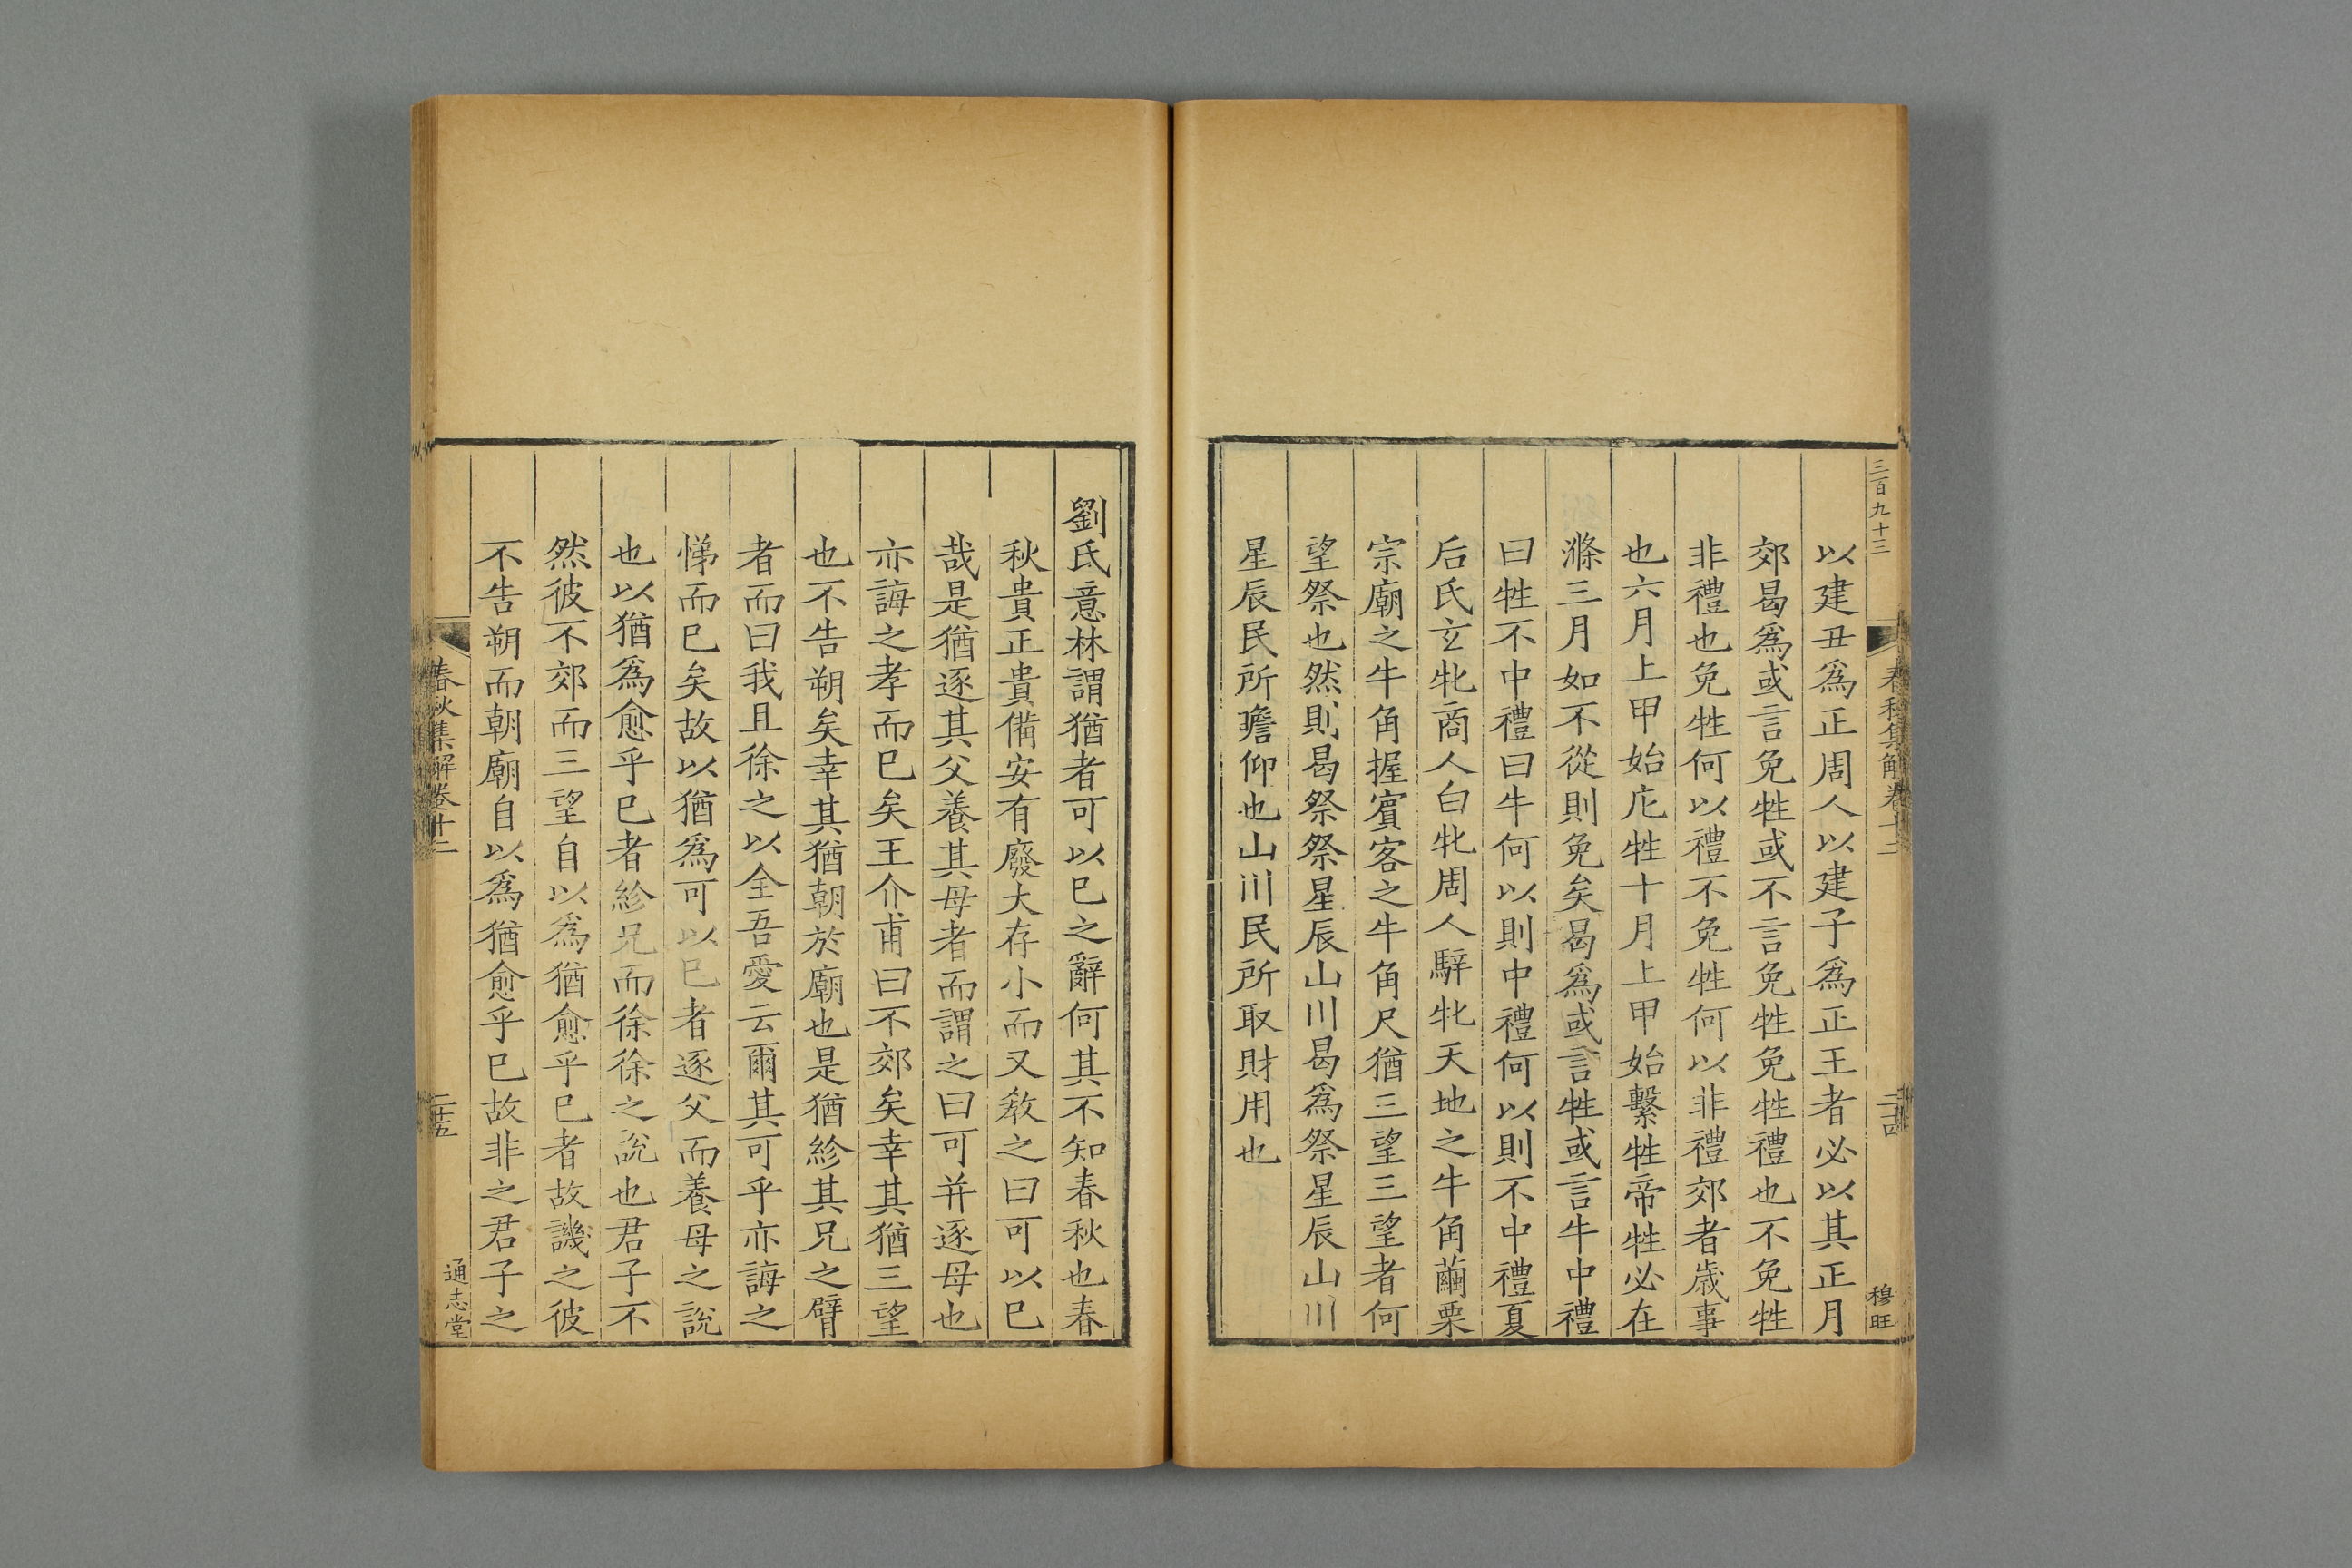 三百九十三
春秋集解卷十二
二十四
穆旺
以建丑爲正周人以建子爲正王者必以其正月
郊曷爲或言免牲或不言免牲免牲禮也不免牲
非禮也免牲何以禮不免牲何以非禮郊者歲事
也六月上甲始庀牲十月上甲始繫牲帝牲必在
滌三月如不從則免矣曷爲或言牲或言牛中禮
曰牲不中禮曰牛何以則中禮何以則不中禮夏
后氏玄牝商人白牝周人騂牝天地之牛角繭栗
宗廟之牛角握賓客之牛角尺猶三望三望者何
望祭也然則曷祭祭星辰山川曷爲祭星辰山川
星辰民所瞻仰也山川民所取財用也
劉氏意林謂猶者可以已之辭何其不知春秋也春
秋貴正貴備安有廢大存小而又敎之曰可以已
哉是猶逐其父養其母者而謂之曰可并逐母也
亦誨之孝而已矣王介甫曰不郊矣幸其猶三望
也不告朔矣幸其猶朝於廟也是猶紾其兄之臂
者而曰我且徐之以全吾愛云爾其可乎亦誨之
悌而已矣故以猶爲可以已者逐父而養母之說
也以猶爲愈乎已者紾兄而徐徐之說也君子不
然彼不郊而三望自以爲猶愈乎已者故譏之彼
不告朔而朝廟自以爲猶愈乎已故非之君子之
春秋集解卷十二
二十五
通志堂